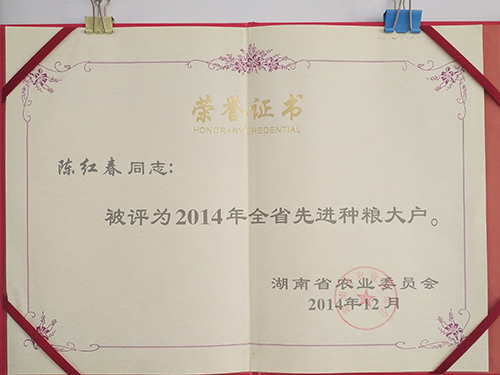 荣誉证书
HONORARY CREDENTIAL
陈红春同志：
被评为2014年全省先进种粮大户。
湖南省农业委员会
2014年12月